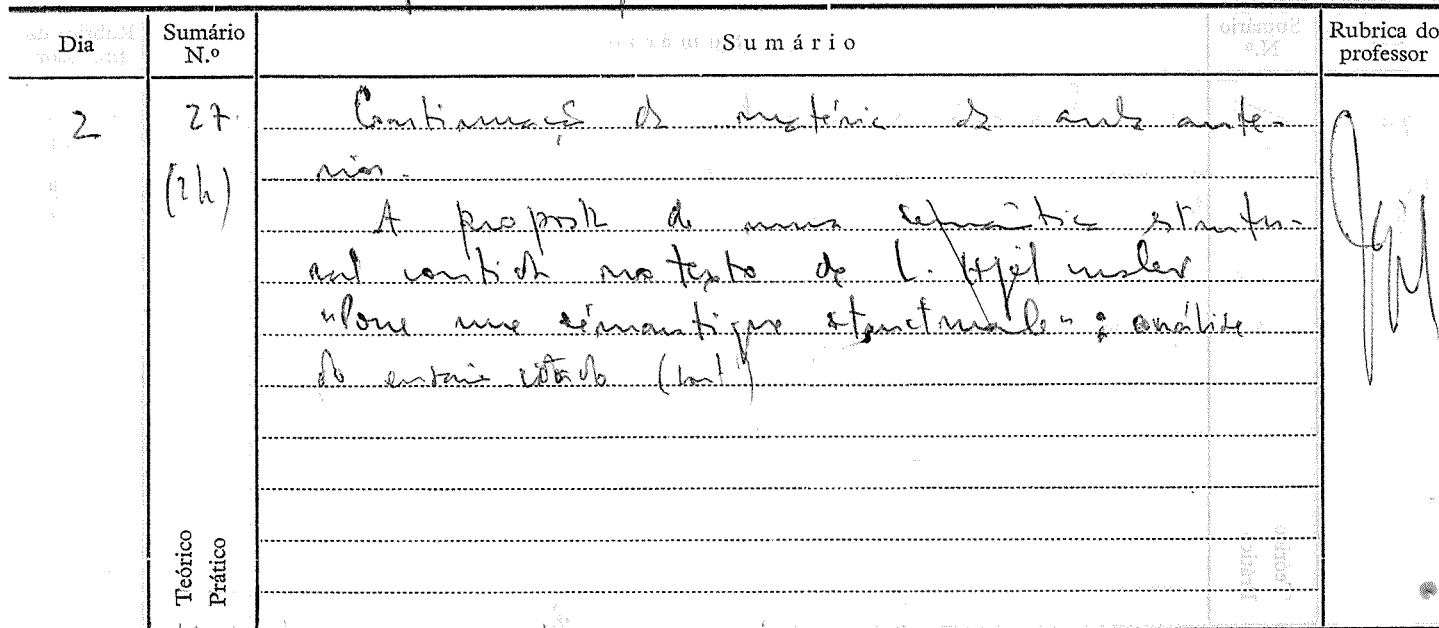 Dia
Sumário N.º
Sumário
Rubrica do professor
2
27
(2h)
Continuação da matéria da aula ante-
rior.
A proposta de uma semântica estrutu-
ral contida no texto de L. Hjelmslev
"Pour une sémantique structurale": análise
do ensaio citado (cont.)
Teórico
Prático